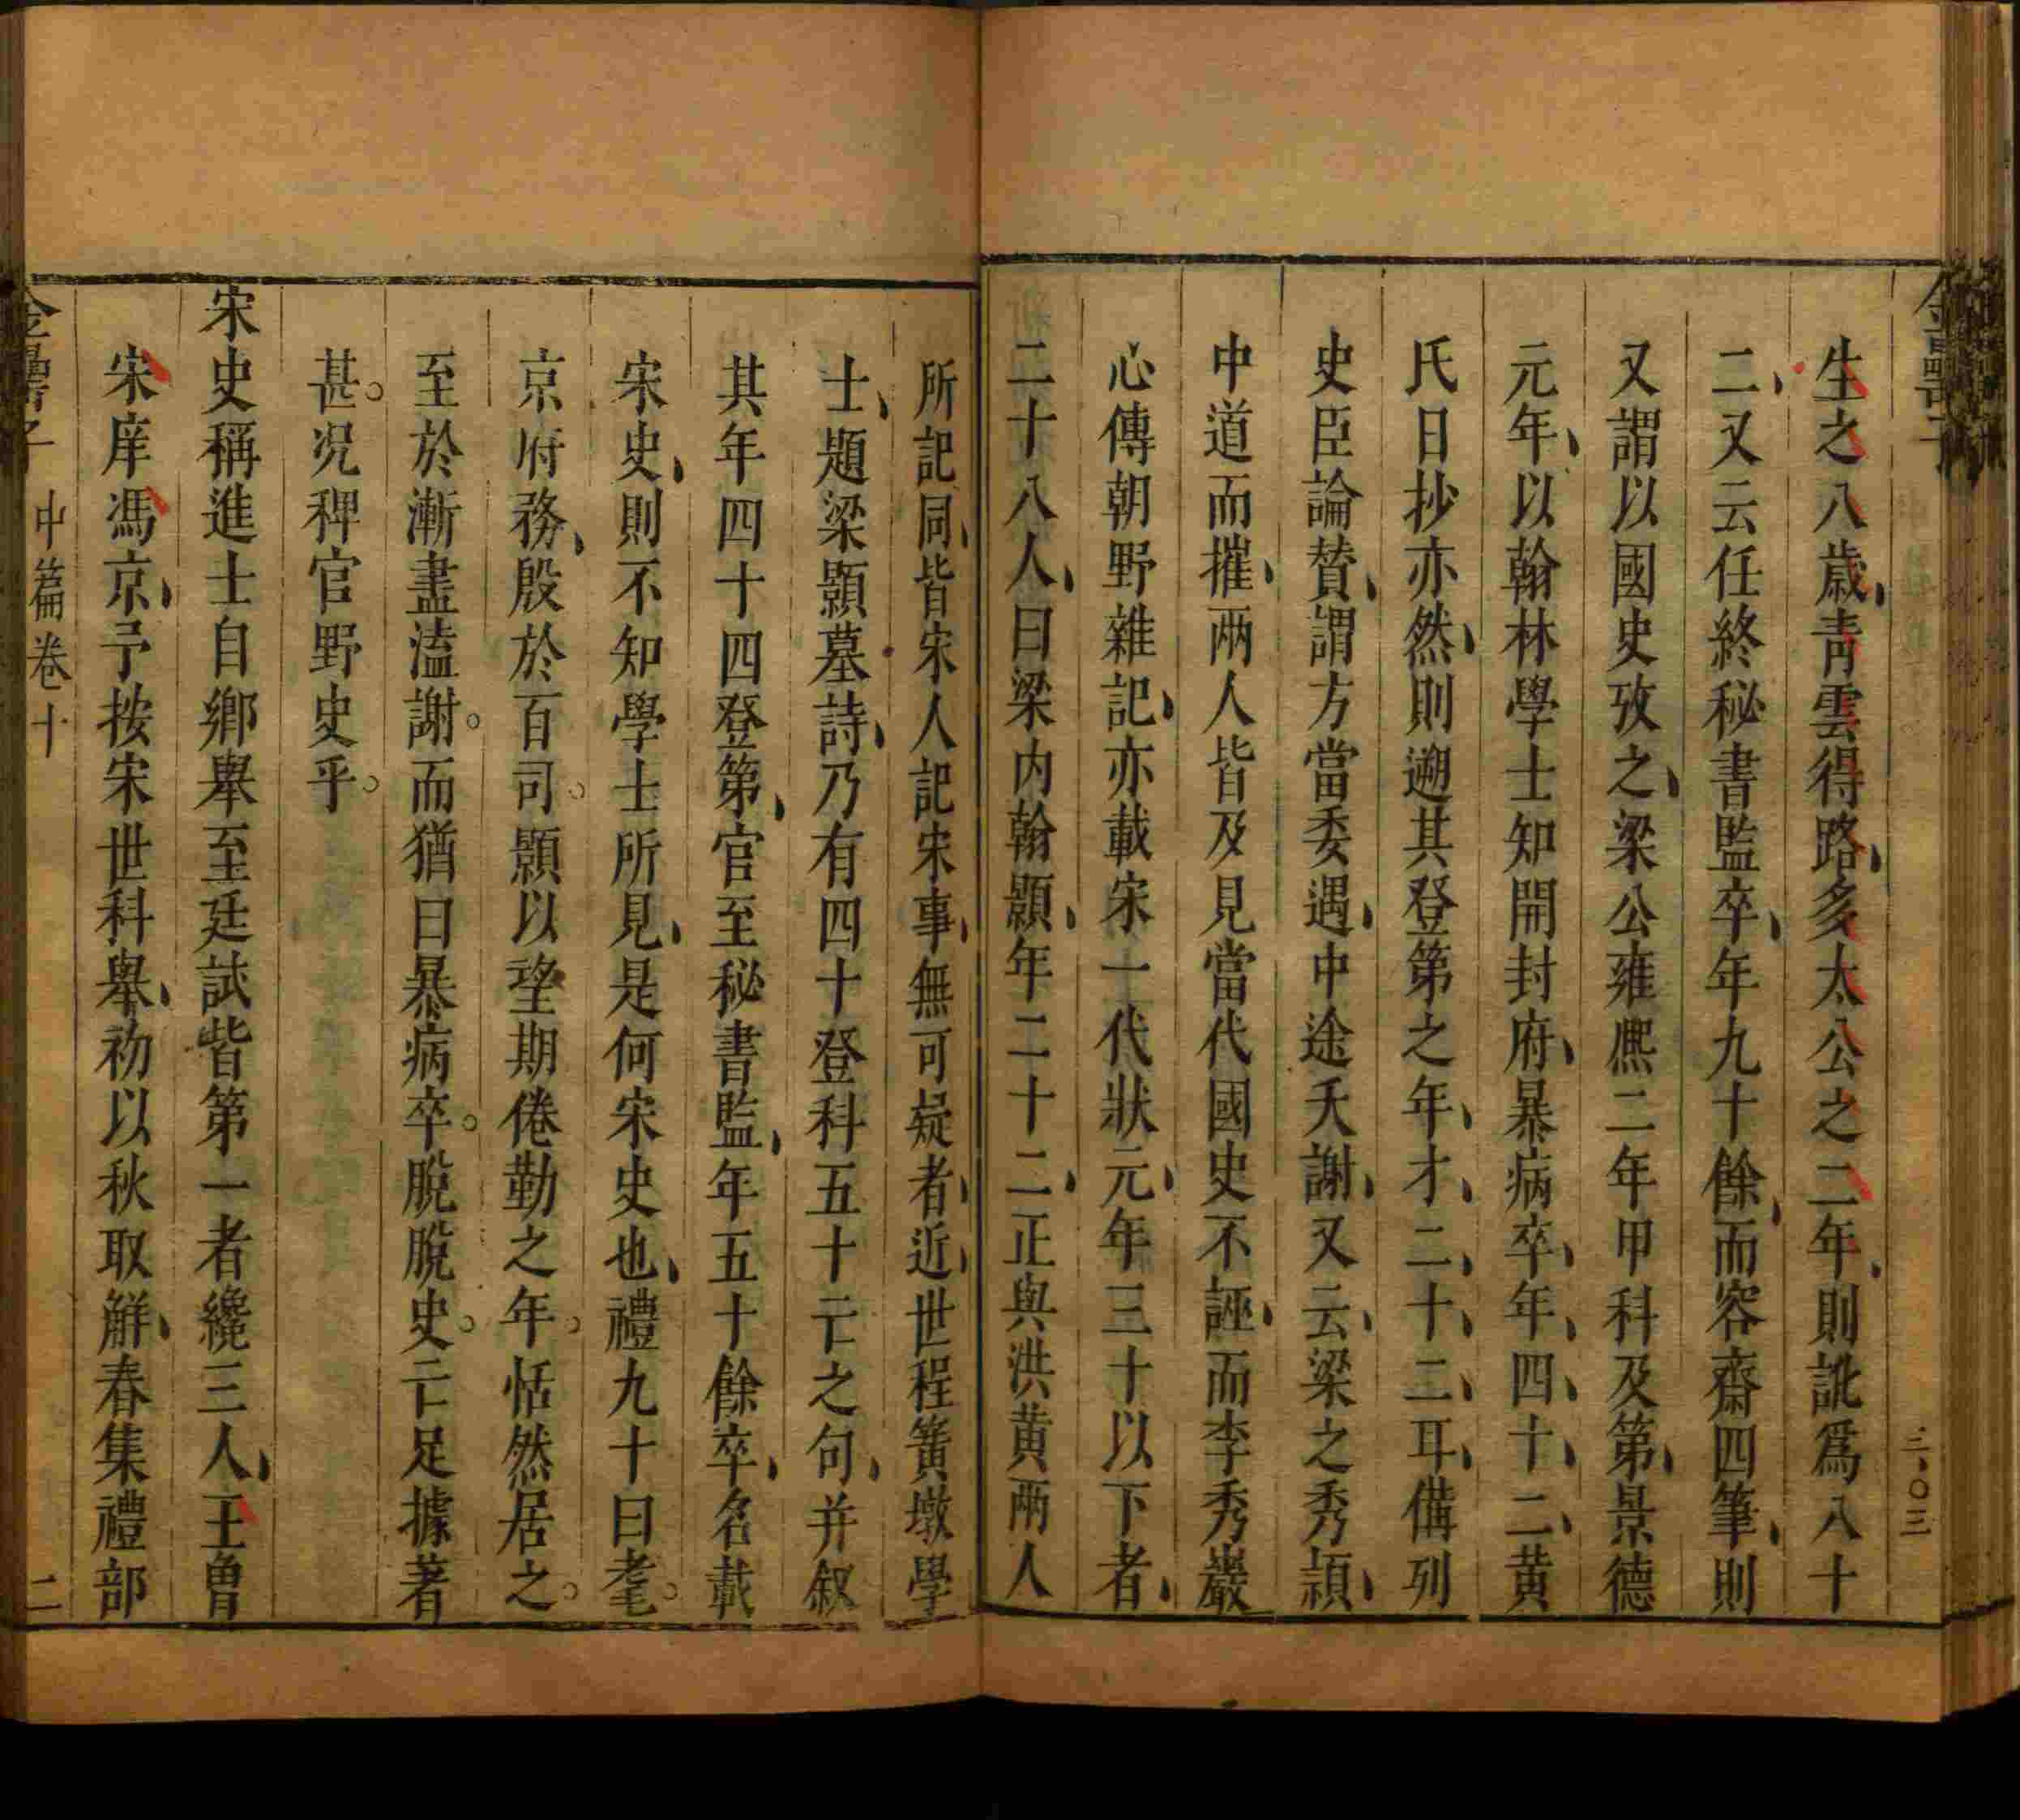 生之八歲、青雲得路、多太公之二年、則訛爲八十
二、又云任終秘書監卒、年九十餘、而容齋四筆、則
又謂以國史攷之、梁公雍熙二年甲科及第、景德
元年、以翰林學士知開封府、暴病卒、年、四、十、二、黄
氏日抄亦然、則遡其登第之年、才、二、十、二、耳、備列
史臣論賛、謂方當委遇、中途夭謝、又云、梁之秀頴、
中道而摧、兩人皆及見當代國史不誣、而李秀巖
心傳朝野雜記、亦載宋一代狀元、年三十以下者、
二十八人、曰梁内翰顥、年二十二、正與洪黄兩人
所記同、皆宋人記宋事、無可疑者、近、世程篁墩學
士、題梁顥墓詩、乃有四十登科五十亡之句、并叙
其年四十四登第、官至秘書監、年五十餘卒、名載
宋史、則不知學士所見、是何宋史也、禮九十曰耄。
京府務、殷於百司。顥以望期倦勤之年。恬然居之。
至於漸盡溘謝。而猶曰暴病卒。脫脫史。亡足據著
甚。况稗官野史乎。
宋史稱進士自鄉舉至廷試皆第一者纔三人、王曾
宋庠馮京、予按宋世科舉、初以秋取解、春集禮部
金罍子 中篇卷十 二
三、〇三